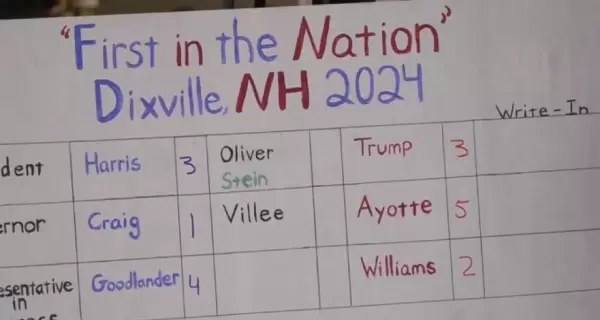 "First in the Nation"
Dixville, NH 2024
Write-In
dent Harris 3 Oliver Trump 3
Stein
ernor Craig 1 Villee Ayotte 5
esentative Goodlander 4 Williams 2
in